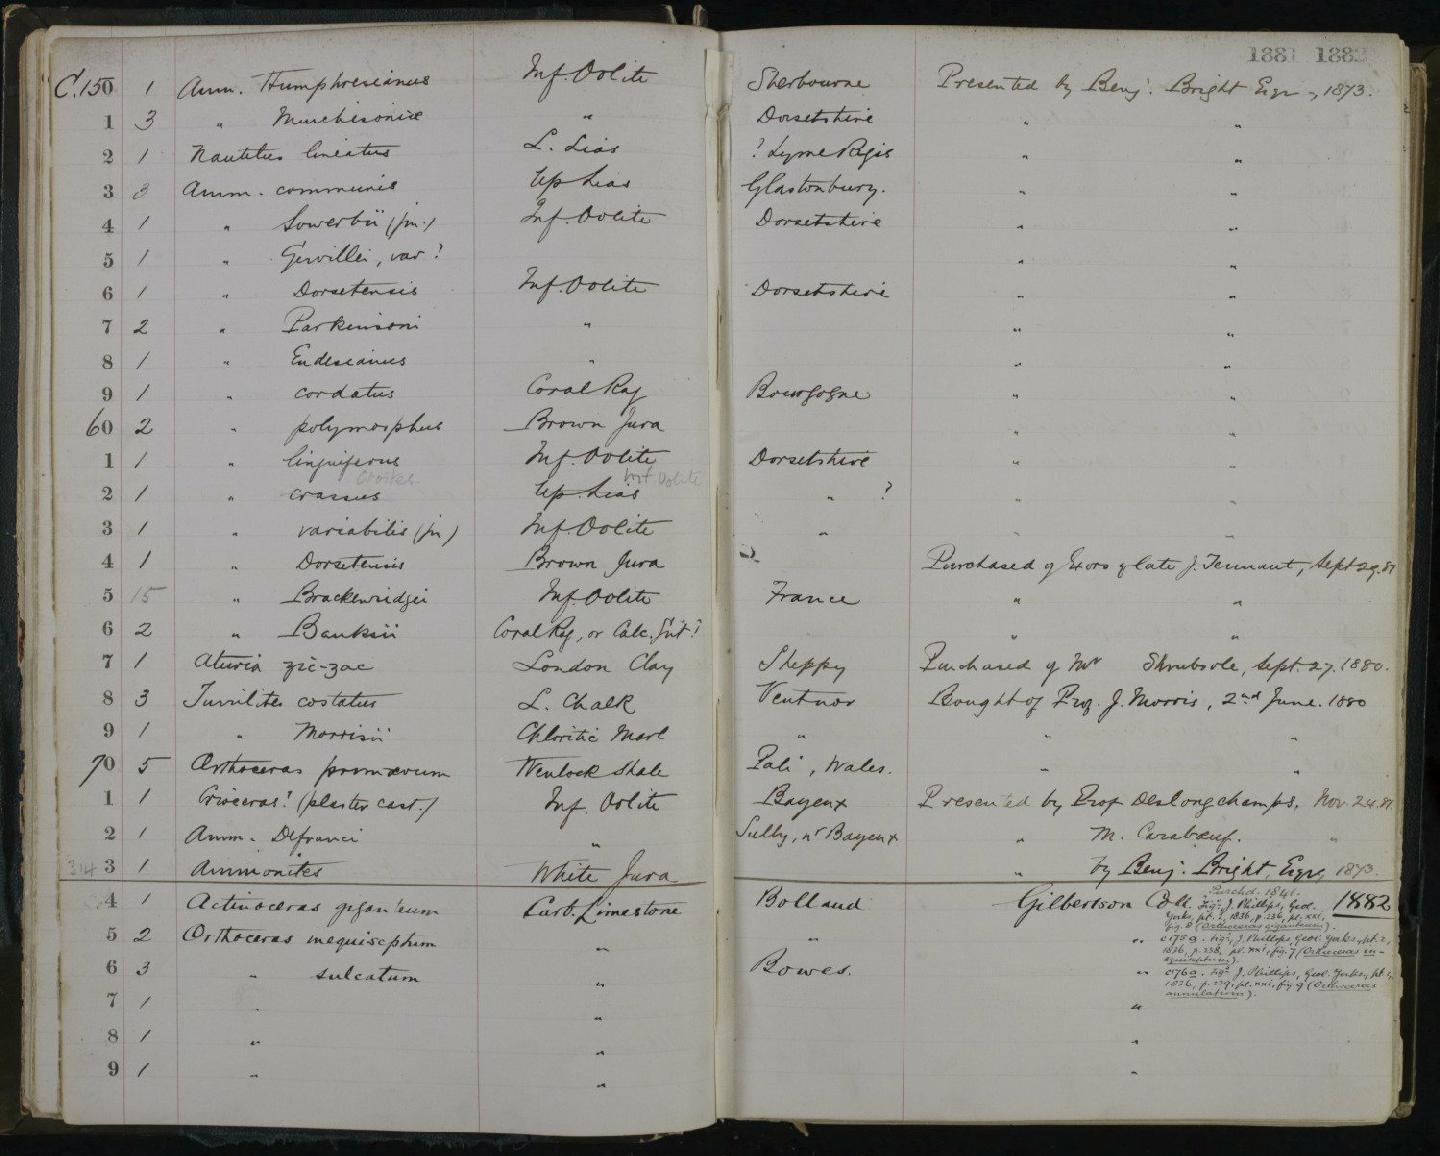 1881 1882
C.150 1 Amm. Humphresianus Inf. Oolite Sherbourne Presented by Benj. Bright Esqr, 1873.
1 3 " Murchisoniæ " Dorsetshire " "
2 1 Nautilus lineatus L. Lias ? Lyme Regis " "
3 3 Amm. communis Up Lias Glastonbury. " "
4 1 " Sowerbii (jun.) Inf. Oolite Dorsetshire " "
5 1 " Gervillei, var? " "
6 1 " Dorsetensis Inf. Oolite Dorsetshire " "
7 2 " Parkinsoni " " "
8 1 " Eudesianus " " "
9 1 " cordatus Coral Rag Bourgogne " "
60 2 " polymorphus Brown Jura " "
1 1 " linguiferus Inf. Oolite Dorsetshire " "
Inf. Oolite
2 1 " crassus Up. Lias " ? " "
3 1 " variabilis (jn) Inf. Oolite " " "
4 1 " Dorsetensis Brown Jura Purchased of Exors of late J. Tennant, Sept 29. 81
5 15 " Brackenridgei Inf. Oolite France " "
6 2 " Banksii Coral Rg, or Calc. Grit? " "
7 1 Aturia zic-zac London Clay Sheppy Purchased of Mr Shrubsole, Sept. 27. 1880.
8 3 Turrilites costatus L. Chalk Ventnor Bought of Prof. J. Morris, 2nd June. 1880
9 1 " Morrisii Chloritic Marl " " "
70 5 Orthoceras primævum Wenlock Shale Pali, Wales. " "
1 1 Crioceras? (plaster cast.) Inf. Oolite Bayeux Presented by Prof Deslongchamps. Nov. 24. 81.
2 1 Amm. Defranci " Sully, nr Bayeux " M. " "
314 3 1 Ammonites White Jura " by Benj. Bright, Esqre, 1873.
4 1 Actinoceras giganteum Carb. Limestone Bolland Gilbertson Coll. 1882
Purchd. 1841.
Figd. J. Phillips, Geol.
Yorks, pt. 2, 1836, p. 236, pl. xxi,
fig. 3 (Orthoceras giganteum).
5 2 Orthoceras inequiseptum " " " c175a. Figd. J. Phillips, Geol. Yorks, pt. 2,
1836, p. 238, pl. xxi, fig. 7 (Orthoceras in-
equiseptum).
6 3 " sulcatum " Bowes. " c176a. Figd. J. Phillips, Geol. Yorks, pt 2,
1836, p. 239, pl. xxi, fig 9 (Orthoceras
annulatum).
7 1 " " "
8 1 " " "
9 1 " " "